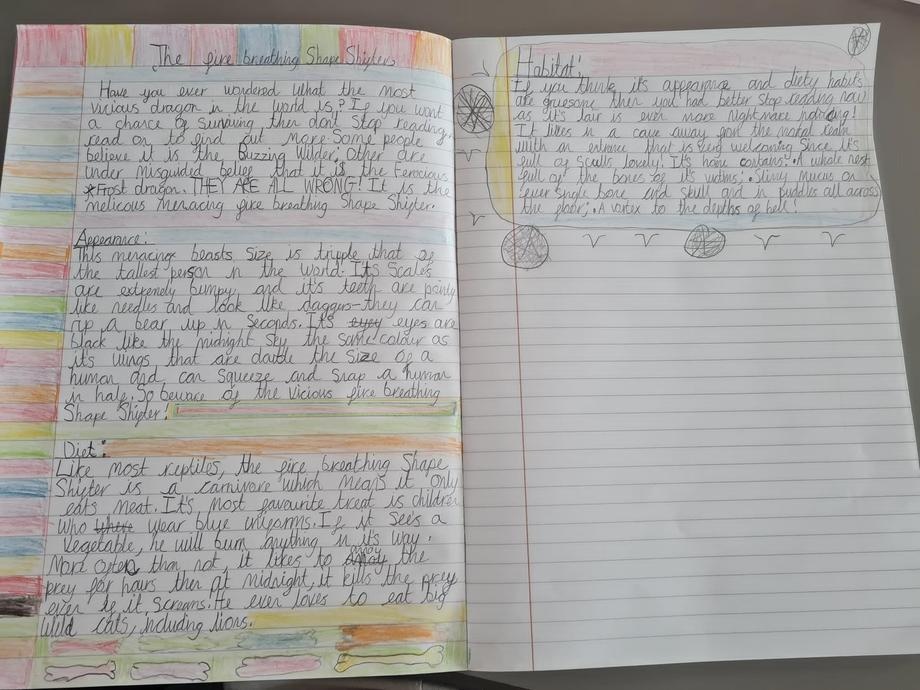 The fire breathing Shape Shifter
Have you ever wondered what the most
vicious dragon in the world is? If you want
a chance of surviving then dont stop reading,
read on to find out more. Some people
believe it is the Buzzing Wilder. Other are
under misguided belief that it is the ferocious
*Frost dragon. THEY ARE ALL WRONG! It is the
melicous menacing fire breathing Shape Shifter.
Apearance:
This menacing beasts size is tripple that of
the tallest person in the world. Its Scales
are extremely bumpy, and it's teeth are pointy
like needles and look like daggers-they can
rip a bear up in seconds. It's eyes are
black like the midnight sky the same colour as
it's wings that are double the size of a
human and can squeeze and snap a human
in half. So beware of the vicious fire breathing
Shape Shifter!
Diet:
Like most reptiles, the fire breathing Shape
Shifter is a carnivore which means it only
eats meat. It's most favourite treat is children
who wear blue uniforms. If it see's a
vegetable, he will burn anything in its way.
More often than not, it likes to annoy the
prey for hours then at midnight, it kills the prey
even if it screams. He even loves to eat big
wild cats, including lions.
Habitat:
If you think it's appearance and diety habits
are gruesome then you had better stop reading now
as it's lair is even more nightmare
It lives in a cave away from the mortal realm
with an entrance that is very welcoming since it's
full of sculls lovely! It's home contains: • A whole nest
full of the bones of it's victims; • Slimy mucus on
ever single bone and skull and in puddles all across
the floor; • A vortex to the depths of hell!